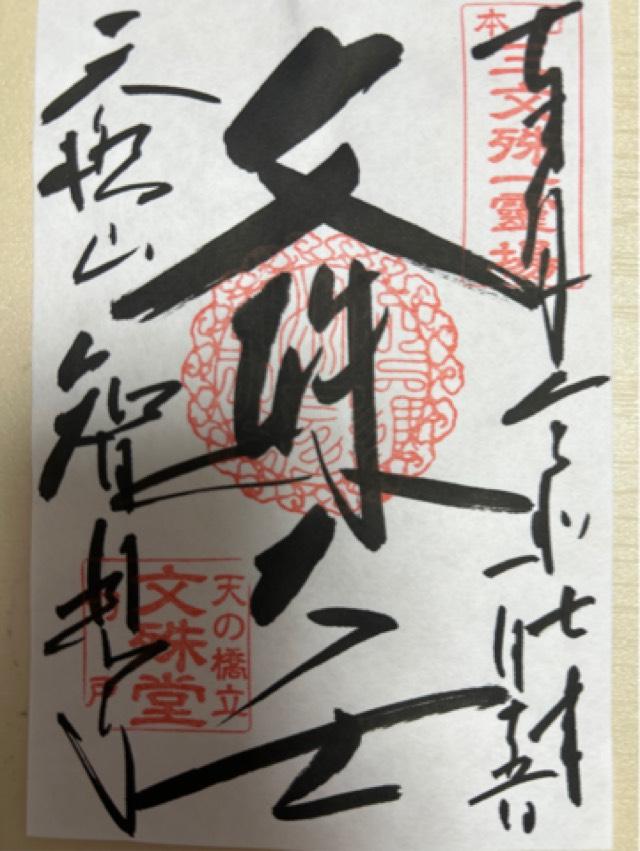 奉拝
令和七年
一月十五日
日本
三文殊一靈場
文殊大士
天橋山
智恩寺
天の橋立
文殊堂